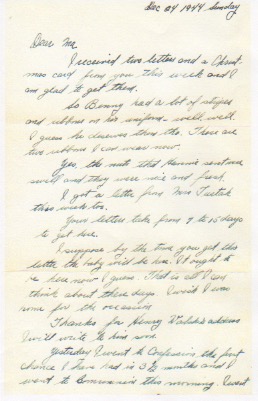 Dec 24 1944 Sunday
Dear Ma
I received two letters and a Christ-
mas card from you this week and I
am glad to get them.
So Benny had a lot of stripes
and ribbons on his uniform. well, well
I guess he deserves them tho. There are
two ribbons I can wear now.
Yes, the nuts that sent were
swell and they were nice and fresh.
I got a letter from Mrs
this week too.
Your letters take from 9 to 15 days
to get here.
I suppose by the time you get this
letter the baby will be here. It ought to
be here now I guess. That is all I can
think about these days. I wish I was
home for the occasion.
Thanks for Henry address
I will write to him soon.
Yesterday I went to Confession, the first
chance I have had in 3½ months and I
went to Communion this morning. I went